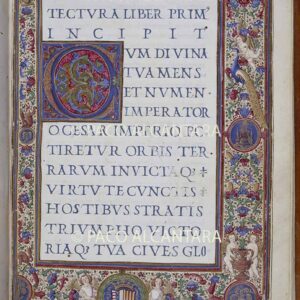 TECTVRA LIBER PRIMꝰ
INCIPIT
CVM DIVINA
TVA MENS
ET NVMEN
IMPERATOR
O CESAR IMPERIO PO
TIRETVR ORBIS TER
RARVM INVICTAQꝫ
VIRTVTE CVNCTIS
HOSTIBVS STRATIS
TRIVMPHO VICTO
RIAQꝫ TVA CIVES GLO
© PACO ALCÁNTARA